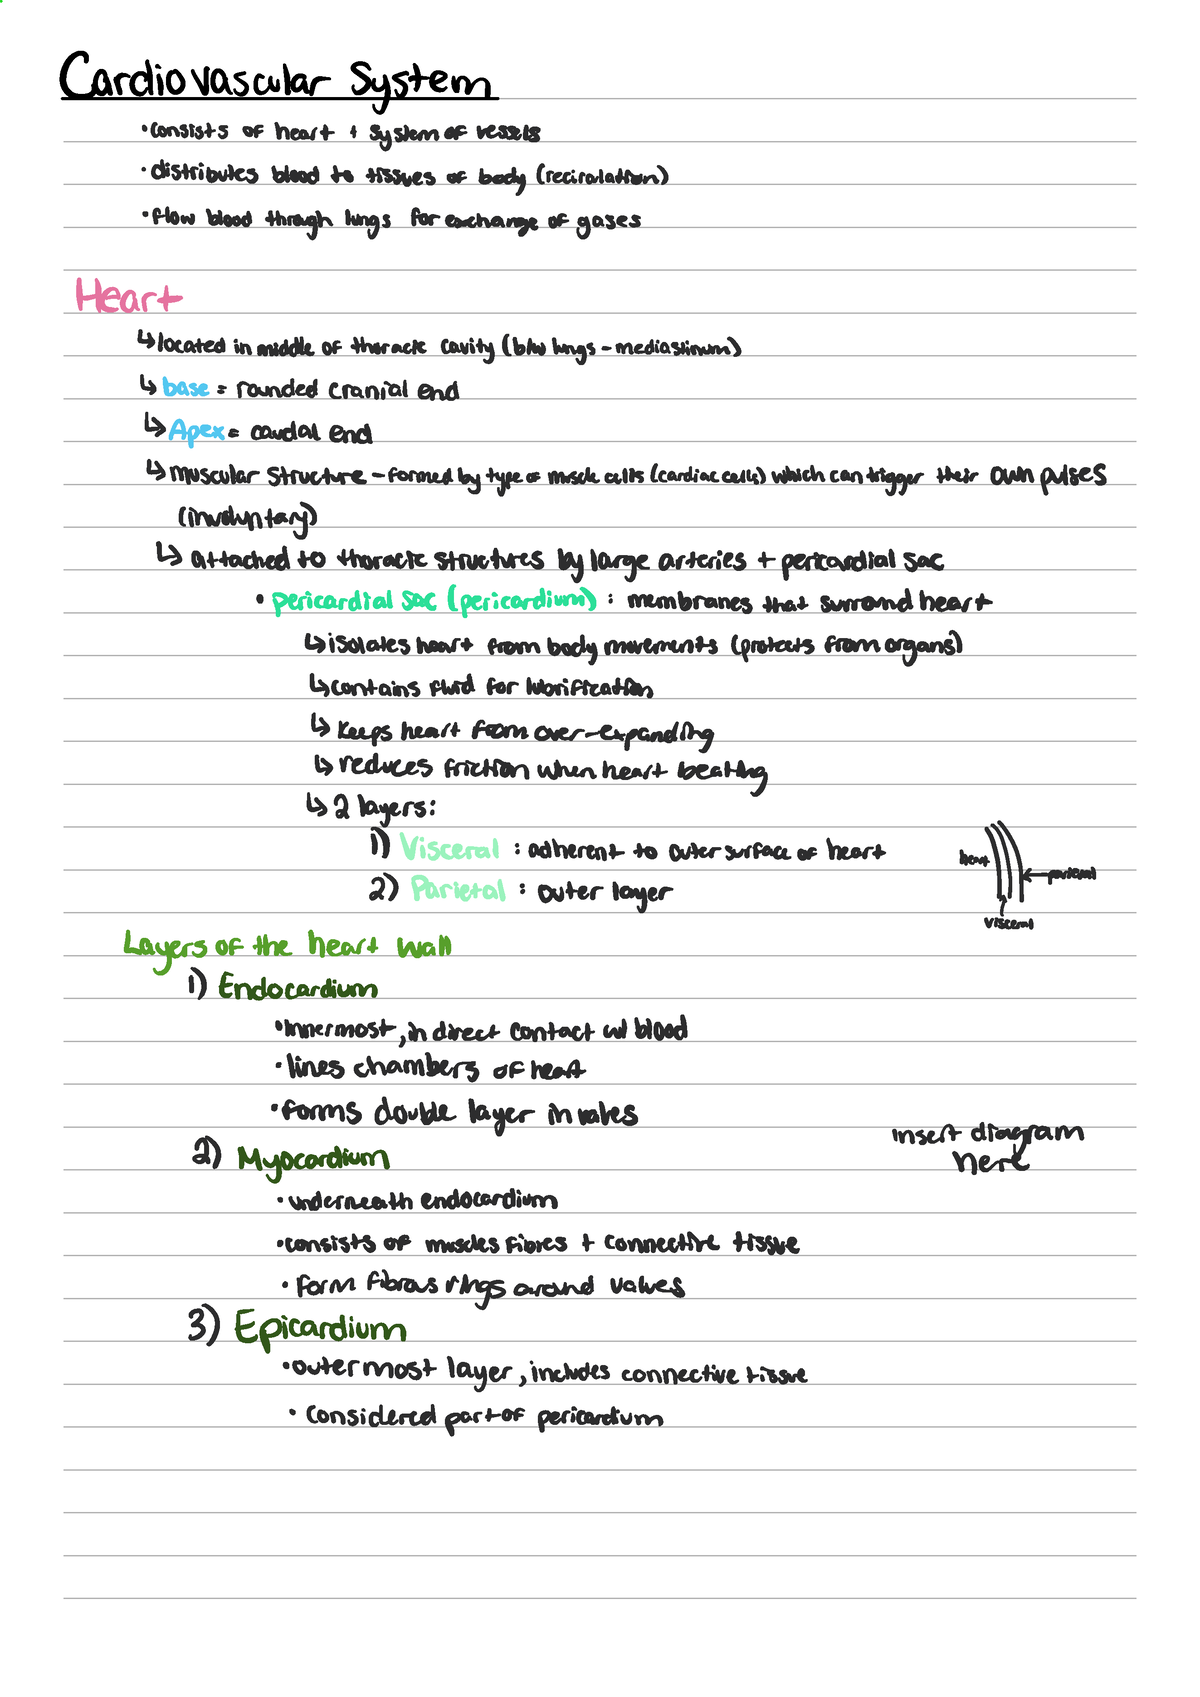 Cardiovascular System
• consists of heart + system of vessels
• distributes blood to tissues of body (recirculation)
• flow blood through lungs for exchange of gases
Heart
↳ located in middle of thoracic cavity (b/w lungs - mediastinum)
↳ base = rounded cranial end
↳ Apex = caudal end
↳ muscular structure - formed by type of muscle cells (cardiac cells) which can trigger their own pulses
(involuntary)
↳ attached to thoracic structures by large arteries + pericardial sac
• pericardial sac (pericardium) : membranes that surround heart
↳ isolates heart from body movements (protects from organs)
↳ contains fluid for lubrification
↳ keeps heart from over-expanding
↳ reduces friction when heart beating
↳ 2 layers:
1) Visceral : adherent to outer surface of heart
2) Parietal : outer layer
heart
parietal
visceral
Layers of the heart wall
1) Endocardium
• innermost, in direct contact w/ blood
• lines chambers of heart
• forms double layer in valves
insert diagram
here
2) Myocardium
• underneath endocardium
• consists of muscles fibres + connective tissue
• form fibrous rings around valves
3) Epicardium
• outermost layer, includes connective tissue
• considered part of pericardium